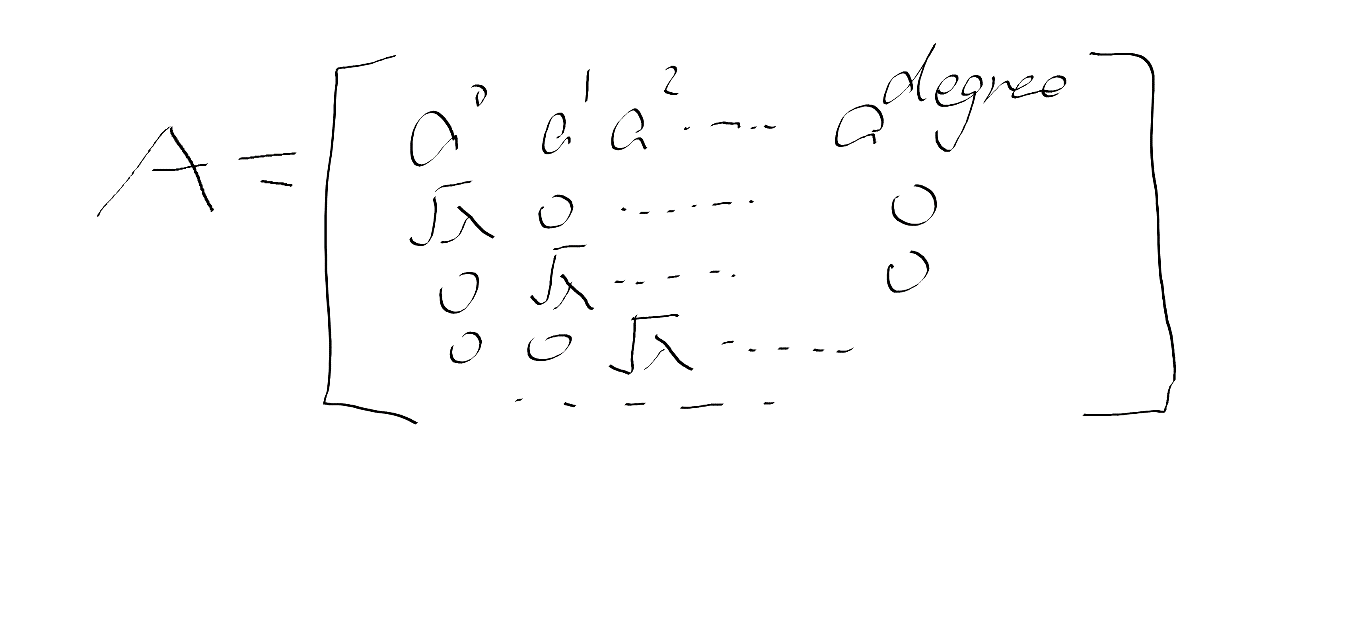 A = [ a^0 a^1 a^2 ..... a^degree
√λ 0 ...... 0
0 √λ ..... 0
0 0 √λ .....
..... ]